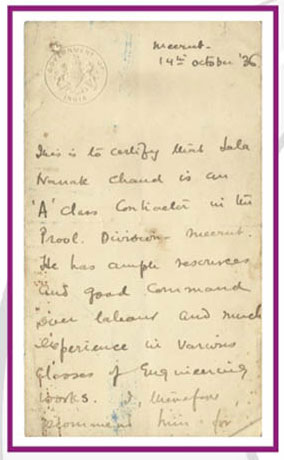 GOVERNMENT OF INDIA
Meerut.
14th October '36
This is to certify that Lala
Nanak Chand is an
'A' Class Contractor in the
Provl. Division Meerut.
He has ample resources
and good command
over labour and much
experience in various
classes of Engineering
works. I, therefore,
recommend him for